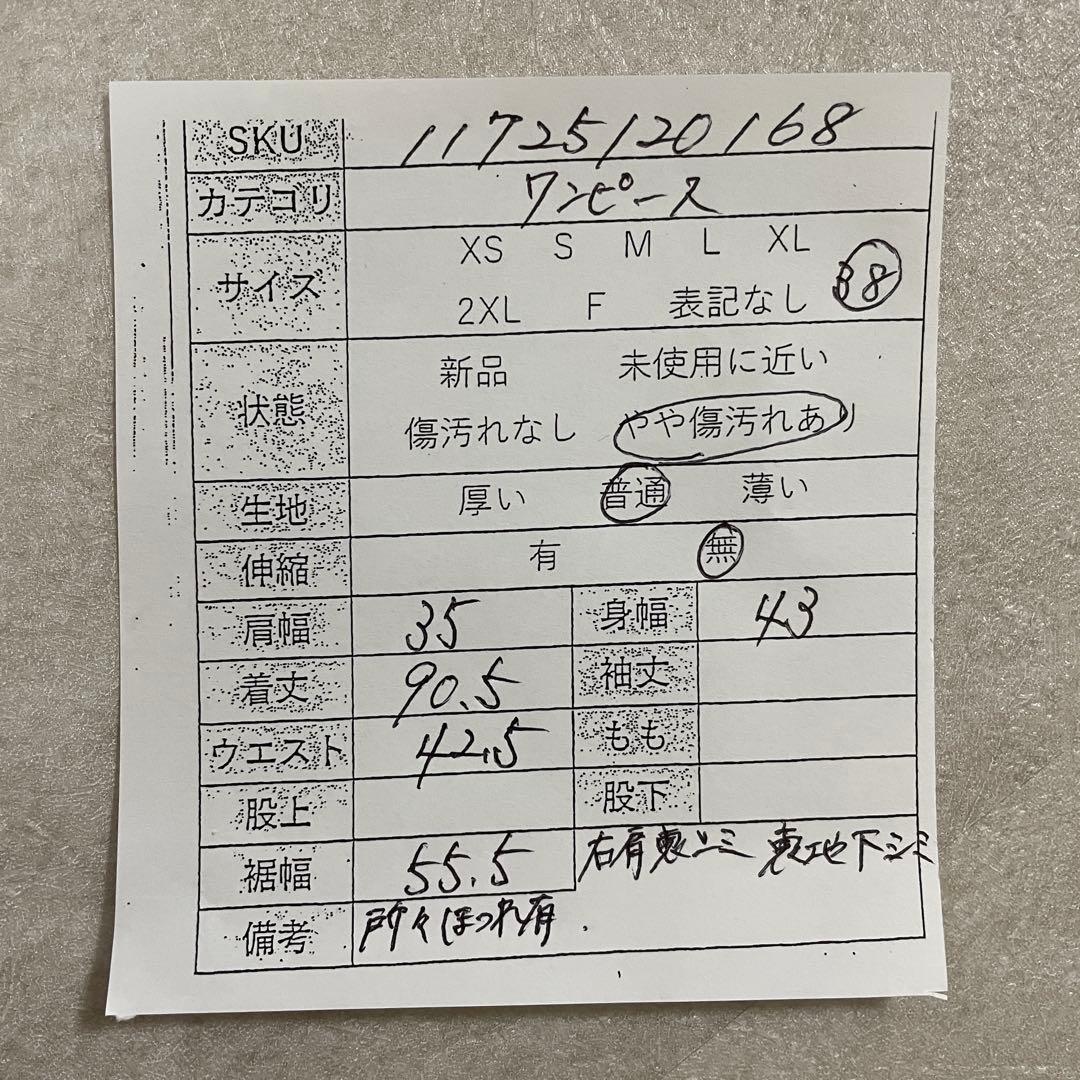 SKU 11725120168
カテゴリ ワンピース
サイズ XS S M L XL
2XL F 表記なし 38
状態 新品 未使用に近い
傷汚れなし やや傷汚れあり
生地 厚い 普通 薄い
伸縮 有 無
肩幅 35 身幅 43
着丈 90.5 袖丈
ウエスト 42.5 もも
股上 股下
裾幅 55.5 右肩裏シミ 裏地下シミ
備考 所々ほつれ有.